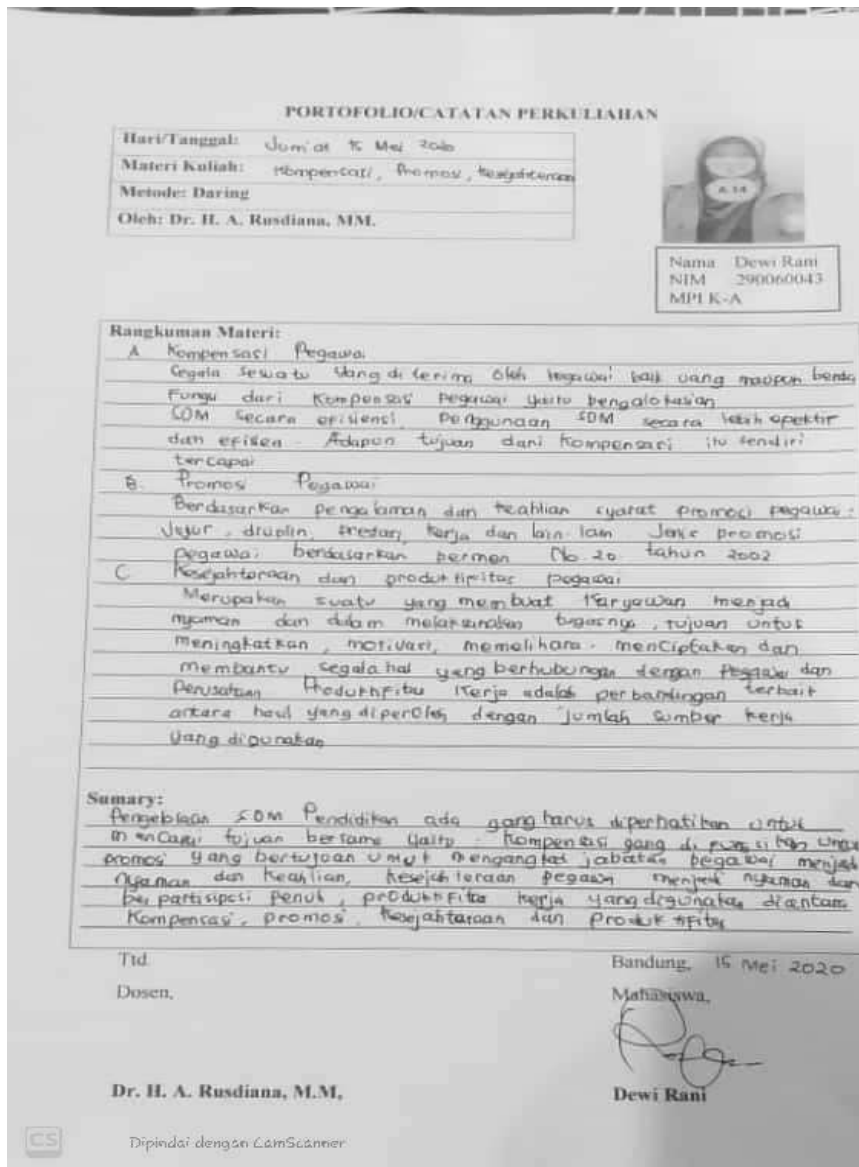 PORTOFOLIO/CATATAN PERKULIAHAN
Hari/Tanggal: Jum'at 15 Mei 2020
Materi Kuliah: Kompensasi, Promosi, Kesejahteraan
Metode: Daring
Oleh: Dr. H. A. Rusdiana, MM.
A.14
Nama Dewi Rani
NIM 290060043
MPI K-A
Rangkuman Materi:
A Kompensasi Pegawai
Segala sesuatu yang di terima oleh pegawai baik uang maupun benda
Fungsi dari Kompensasi Pegawai yaitu pengalokasian
SDM secara efisiensi, Penggunaan SDM secara lebih epektif
dan efisen. Adapun tujuan dari kompensasi itu sendiri
tercapai
B. Promosi Pegawai
Berdasarkan pengalaman dan keahlian syarat promosi pegawai:
Jujur, disiplin, prestasi kerja dan lain-lain Jenis promosi
pegawai berdasarkan permen No. 20 tahun 2002
C Kesejahteraan dan produktifitas pegawai
Merupakan suatu yang membuat Karyawan menjadi
nyaman dan dalam melaksanakan tugasnya, tujuan untuk
meningkatkan, motivasi, memelihara. menciptakan dan
membantu segala hal yang berhubungan dengan Pegawai dan
Perusahaan Produktifitas Kerja adalah perbandingan terbaik
antara hasil yang diperoleh dengan jumlah sumber kerja
yang digunakan
Sumary:
SDM Pendidikan ada yang harus diperhatikan untuk
mencapai tujuan bersama yaitu: Kompensasi yang di untuk
promosi yang bertujuan untuk mengangkat jabatan pegawai menjadi
nyaman dan keahlian, kesejahteraan pegawai menjadi nyaman dan
berpartisipasi penuh, produktifitas kerja yang digunakan diantara
Kompensasi, promosi, Kesejahtaraan dan Produktifitas
Ttd.
Bandung, 15 Mei 2020
Dosen,
Mahasiswa,
Dr. H. A. Rusdiana, M.M,
Dewi Rani
CS Dipindai dengan CamScanner